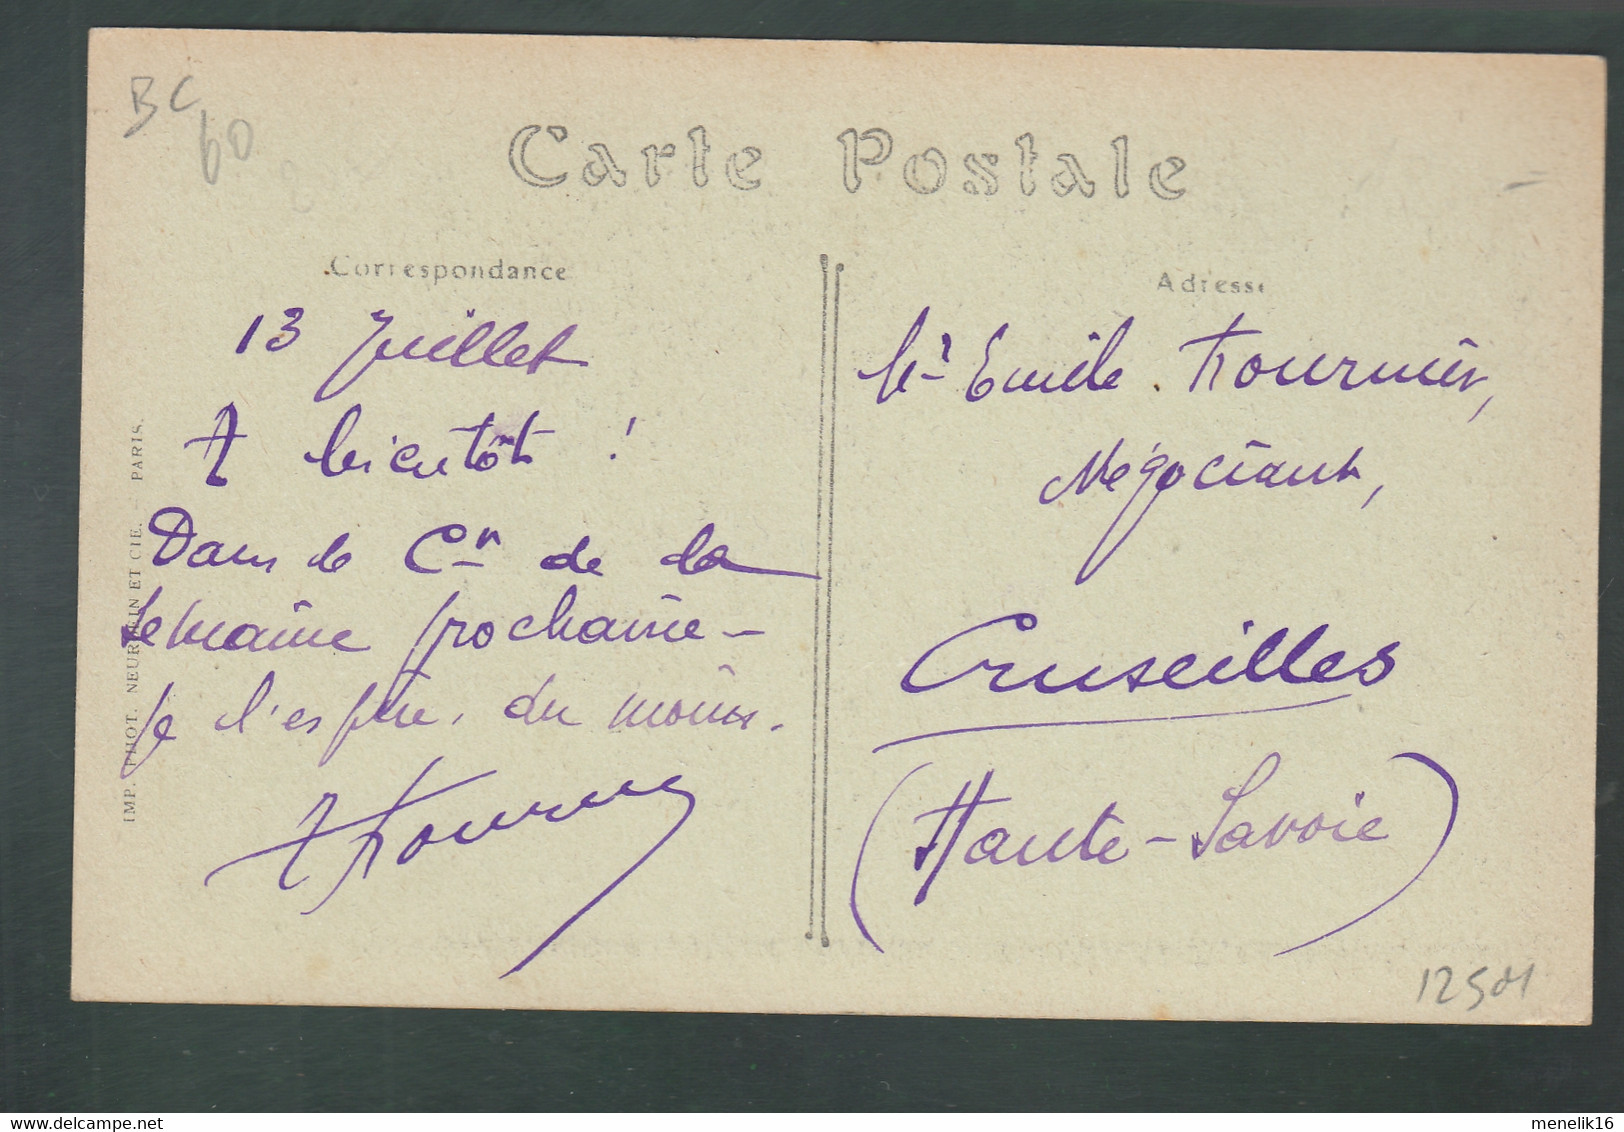 BC
60
Carte Postale
Correspondance
13 Juillet
A bientôt !
Dans le Cⁿ de la
semaine prochaine –
je l'espère, du moins.
A Fournier
Adresse
Mʳ Emile Fournier,
Négociant,
Cruseilles
(Haute-Savoie)
IMP. PHOT. NEURDEIN ET CIE. – PARIS.
12501
menelik16